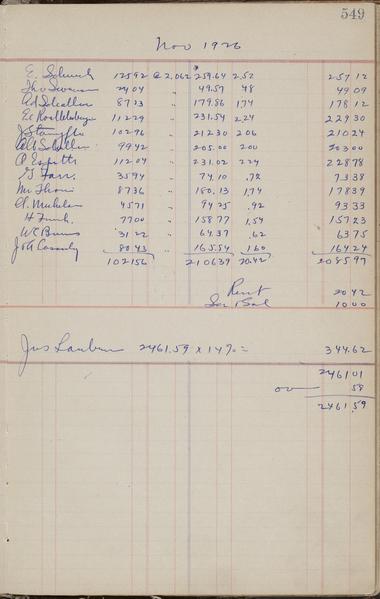 549
Nov 1926
E. 12592 @ 2.062 259.64 2.52 257 12
Tho Swensen 2404 " 49.57 48 49 09
Ad Scballer 8723 " 179.86 1.74 178 12
Ed 11229 " 231.54 2.24 229 30
J 10296 " 212 30 2.06 210 24
9942 " 205.00 2.00 203 00
P. Espetts 11204 " 231.02 2.24 228 78
G Farr. 3594 " 74,10 .72 73 38
Mr Thoni 8736 " 180.13 1.74 178 39
4571 " 94 25 .92 93 33
H Funk. 7700 " 158 77 1.54 157 23
W E Burns 31 22 " 64.37 .62 63 75
Joh Cassidy 80 43 " 165.84 1.60 164 24
102156 2106 39 20.42 2085 97
Rent 20 42
Bal 10 00
Jos 2461.59 x 14% = 344.62
2461 01
ov 58
2461,59